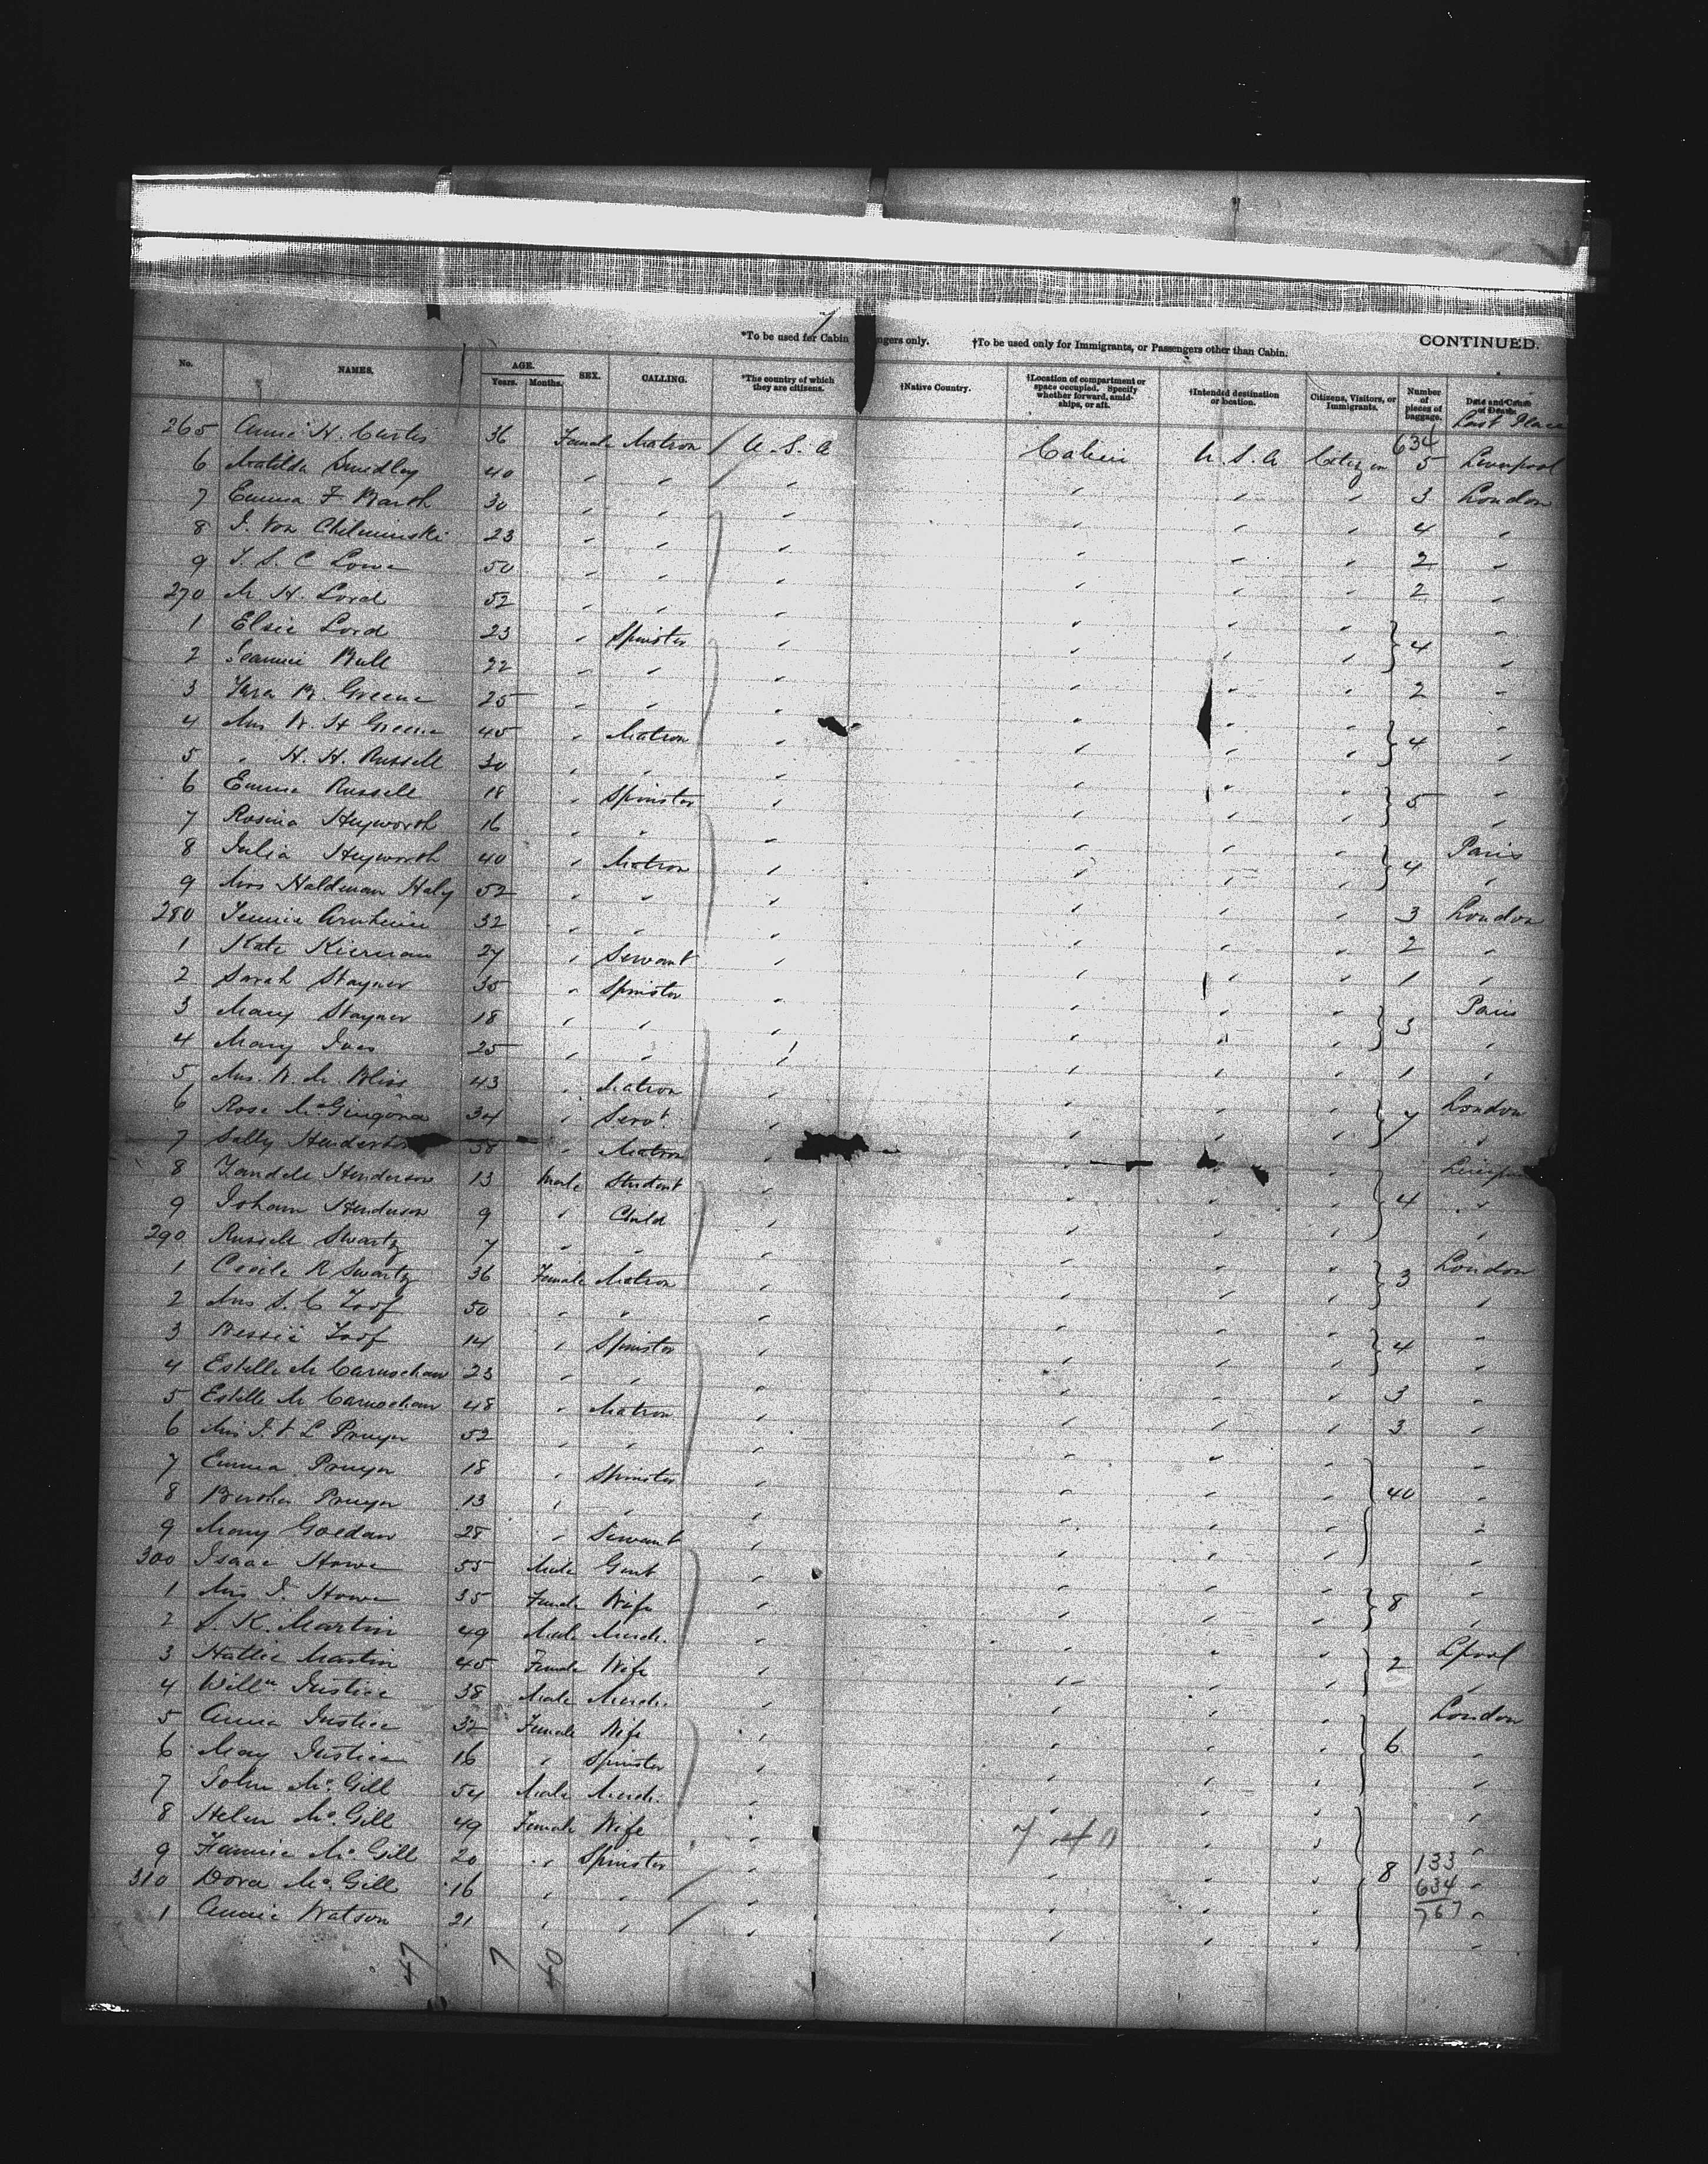 7
*To be used for Cabin ngers only. †To be used only for Immigrants, or Passengers other than Cabin. CONTINUED.
No. NAMES. AGE. Years. Months. SEX. CALLING. *The country of which they are citizens. †Native Country. †Location of compartment or space occupied. Specify whether forward, amidships, or aft. †Intended destination or location. Citizens, Visitors, or Immigrants. Number of pieces of baggage. Date and Cause of Death.
Last Place
634
265 Annie H. Curtis 36 Female Matron U.S.A Cabin U.S.A Citizen 5 Liverpool
6 Matilda Smedley 40 " " " " " " 3 London
7 Emma F Barsh 30 " " " " " " 4 "
8 J. Von Chelminski 23 " " " " " " 2 "
9 T. S. C Lowe 50 " " " " " " 2 "
270 M H. Lord 52 " " " " " " "
1 Elsie Lord 23 " Spinster " " " " 4 "
2 Jeannie Bull 22 " " " " " " 2 "
3 B. Greene 25 " " " " " " "
4 Mrs W. H Greene 45 " Matron " " " " 4 "
5 " H. H. Russell 30 " " " " " " "
6 Emma Russell 18 " Spinster " " " " 5 "
7 Rosina Heyworth 16 " " " " " " Paris
8 Julia Heyworth 40 " Matron " " " " 4 "
9 Mrs Haldeman Haly 52 " " " " " " 3 London
280 Jennie Arnheim 32 " " " " " " 2 "
1 Kate Kiernan 27 " Servant " " " " 1 "
2 Sarah Stayner 35 " Spinster " " " " Paris
3 Mary Stayner 18 " " " " " " 3 "
4 Mary Ives 25 " " " " " " 1 "
5 Mrs. W. M. Bliss 43 " Matron " " " " London
6 Rose 34 " Servt " " " " 7 "
7 Sally Henderson 58 " Matron " " " "
8 Yandell Henderson 13 Male Student " " " " 4 "
9 Isham Henderson 9 " Child " " " " "
290 Russell Swartz 7 " " " " " " London
1 Cecile R Swartz 36 Female Matron " " " " 3 "
2 Mrs S. C Toof 50 " " " " " " "
3 Bessie Toof 14 " Spinster " " " " 4 "
4 Estelle M Carnochan 23 " " " " " " 3 "
5 Estelle M Carnochan 48 " Matron " " " " 3 "
6 Mrs J. V L Pruyn 52 " " " " " " "
7 Emma Pruyn 18 " Spinster " " " " 40 "
8 Bertha Pruyn 13 " " " " " " "
9 Mary 28 " Servant " " " " "
300 Isaac Howe 55 Male Gent " " " " "
1 Mrs I. Howe 35 Female Wife " " " " 8 "
2 S. K. Martin 49 Male Merch. " " " " Lpool
3 Hattie Martin 45 Female Wife " " " " 2 "
4 Willm Justice 38 Male Merch. " " " " London
5 Anna Justice 32 Female Wife " " " " 6 "
6 May Justice 16 " Spinster " " " " "
7 John McGill 54 Male Merch. " " " " "
8 Helen McGill 49 Female Wife " " " " "
7 40
9 Fannie McGill 20 " Spinster " " " " 8 "
310 Dora McGill 16 " " " " " " "
1 Annie Watson 21 " " " " " " "
133
634
767
47 7 40